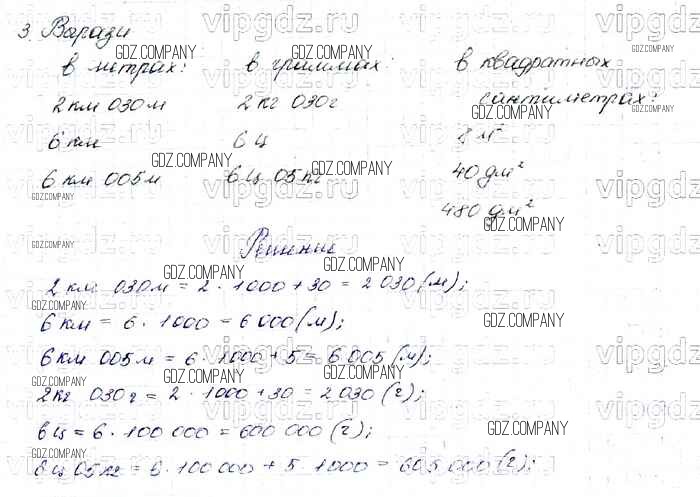 3. Вырази
в метрах: в граммах: в квадратных
сантиметрах:
2 км 030 м 2 кг 030 г
6 км 6 ц 8 м²
6 км 005 м 6 ц 05 кг 40 дм²
480 дм²
Решение
2 км 030 м = 2 · 1000 + 30 = 2 030 (м);
6 км = 6 · 1000 = 6 000 (м);
6 км 005 м = 6 · 1000 + 5 = 6 005 (м);
2 кг 030 г = 2 · 1000 + 30 = 2 030 (г);
6 ц = 6 · 100 000 = 600 000 (г);
6 ц 05 кг = 6 · 100 000 + 5 · 1000 = 605 000 (г);
vipgdz.ru
GDZ.COMPANY